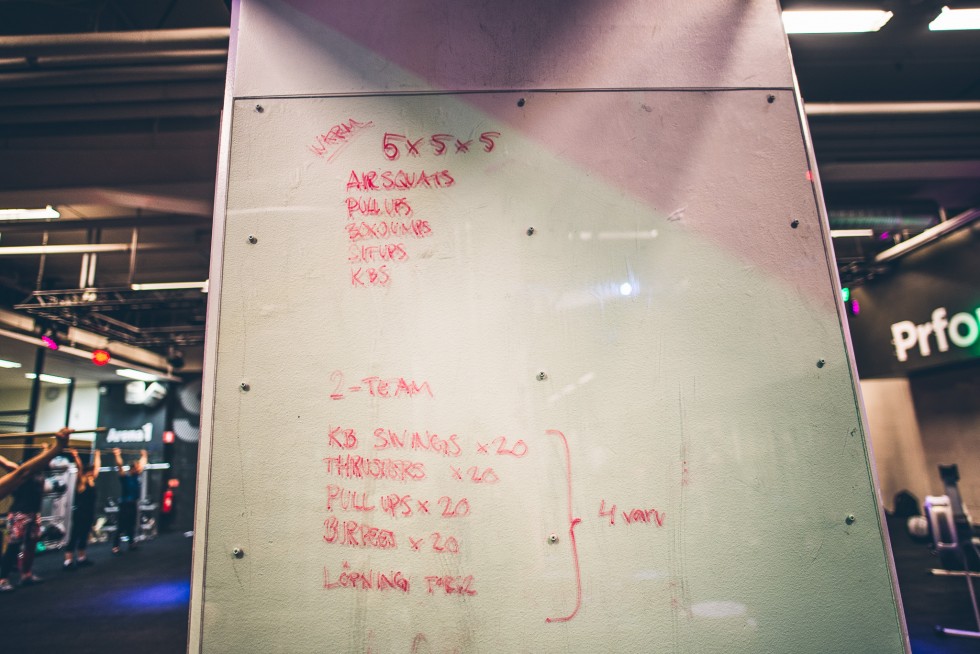 WARM 5x5x5
AIRSQUATS
PULLUPS
BOXJUMPS
SITUPS
KBS
2-TEAM
KB SWINGS x20
THRUSTERS x20
PULL UPS x 20
BURPEES x 20
4 varv
LÖPNING
Arena 1
Prfo